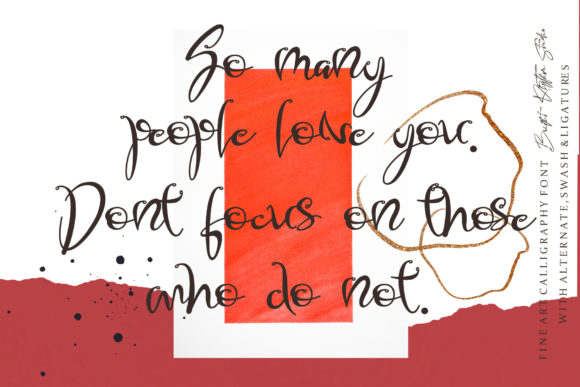 So many
people love you.
Dont focus on those
who do not.
FINE ART CALLIGRAPHY FONT
WITH ALTERNATE, SWASH & LIGATURES